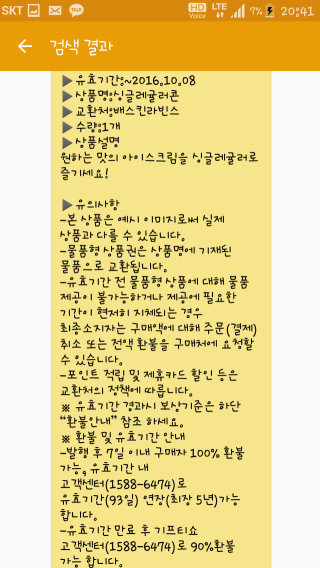 SKT HD Voice LTE 7% 20:41
검색 결과
▶유효기간:~2016.10.08
▶상품명:싱글레귤러콘
▶교환처:배스킨라빈스
▶수량:1개
▶상품설명
원하는 맛의 아이스크림을 싱글레귤러로
즐기세요!
▶유의사항
-본 상품은 예시 이미지로써 실제
상품과 다를 수 있습니다.
-물품형 상품권은 상품명에 기재된
물품으로 교환됩니다.
-유효기간 전 물품형 상품에 대해 물품
제공이 불가능하거나 제공에 필요한
기간이 현저히 지체되는 경우
최종소지자는 구매액에 대해 주문(결제)
취소 또는 전액 환불을 구매처에 요청할
수 있습니다.
-포인트 적립 및 제휴카드 할인 등은
교환처의 정책에 따릅니다.
※ 유효기간 경과시 보상기준은 하단
“환불안내” 참조 하세요.
※ 환불 및 유효기간 안내
-발행 후 7일 이내 구매자 100% 환불
가능, 유효기간 내
고객센터(1588-6474)로
유효기간(93일) 연장(최장 5년)가능
합니다.
-유효기간 만료 후 기프티쇼
고객센터(1588-6474)로 90%환불
가능 합니다.